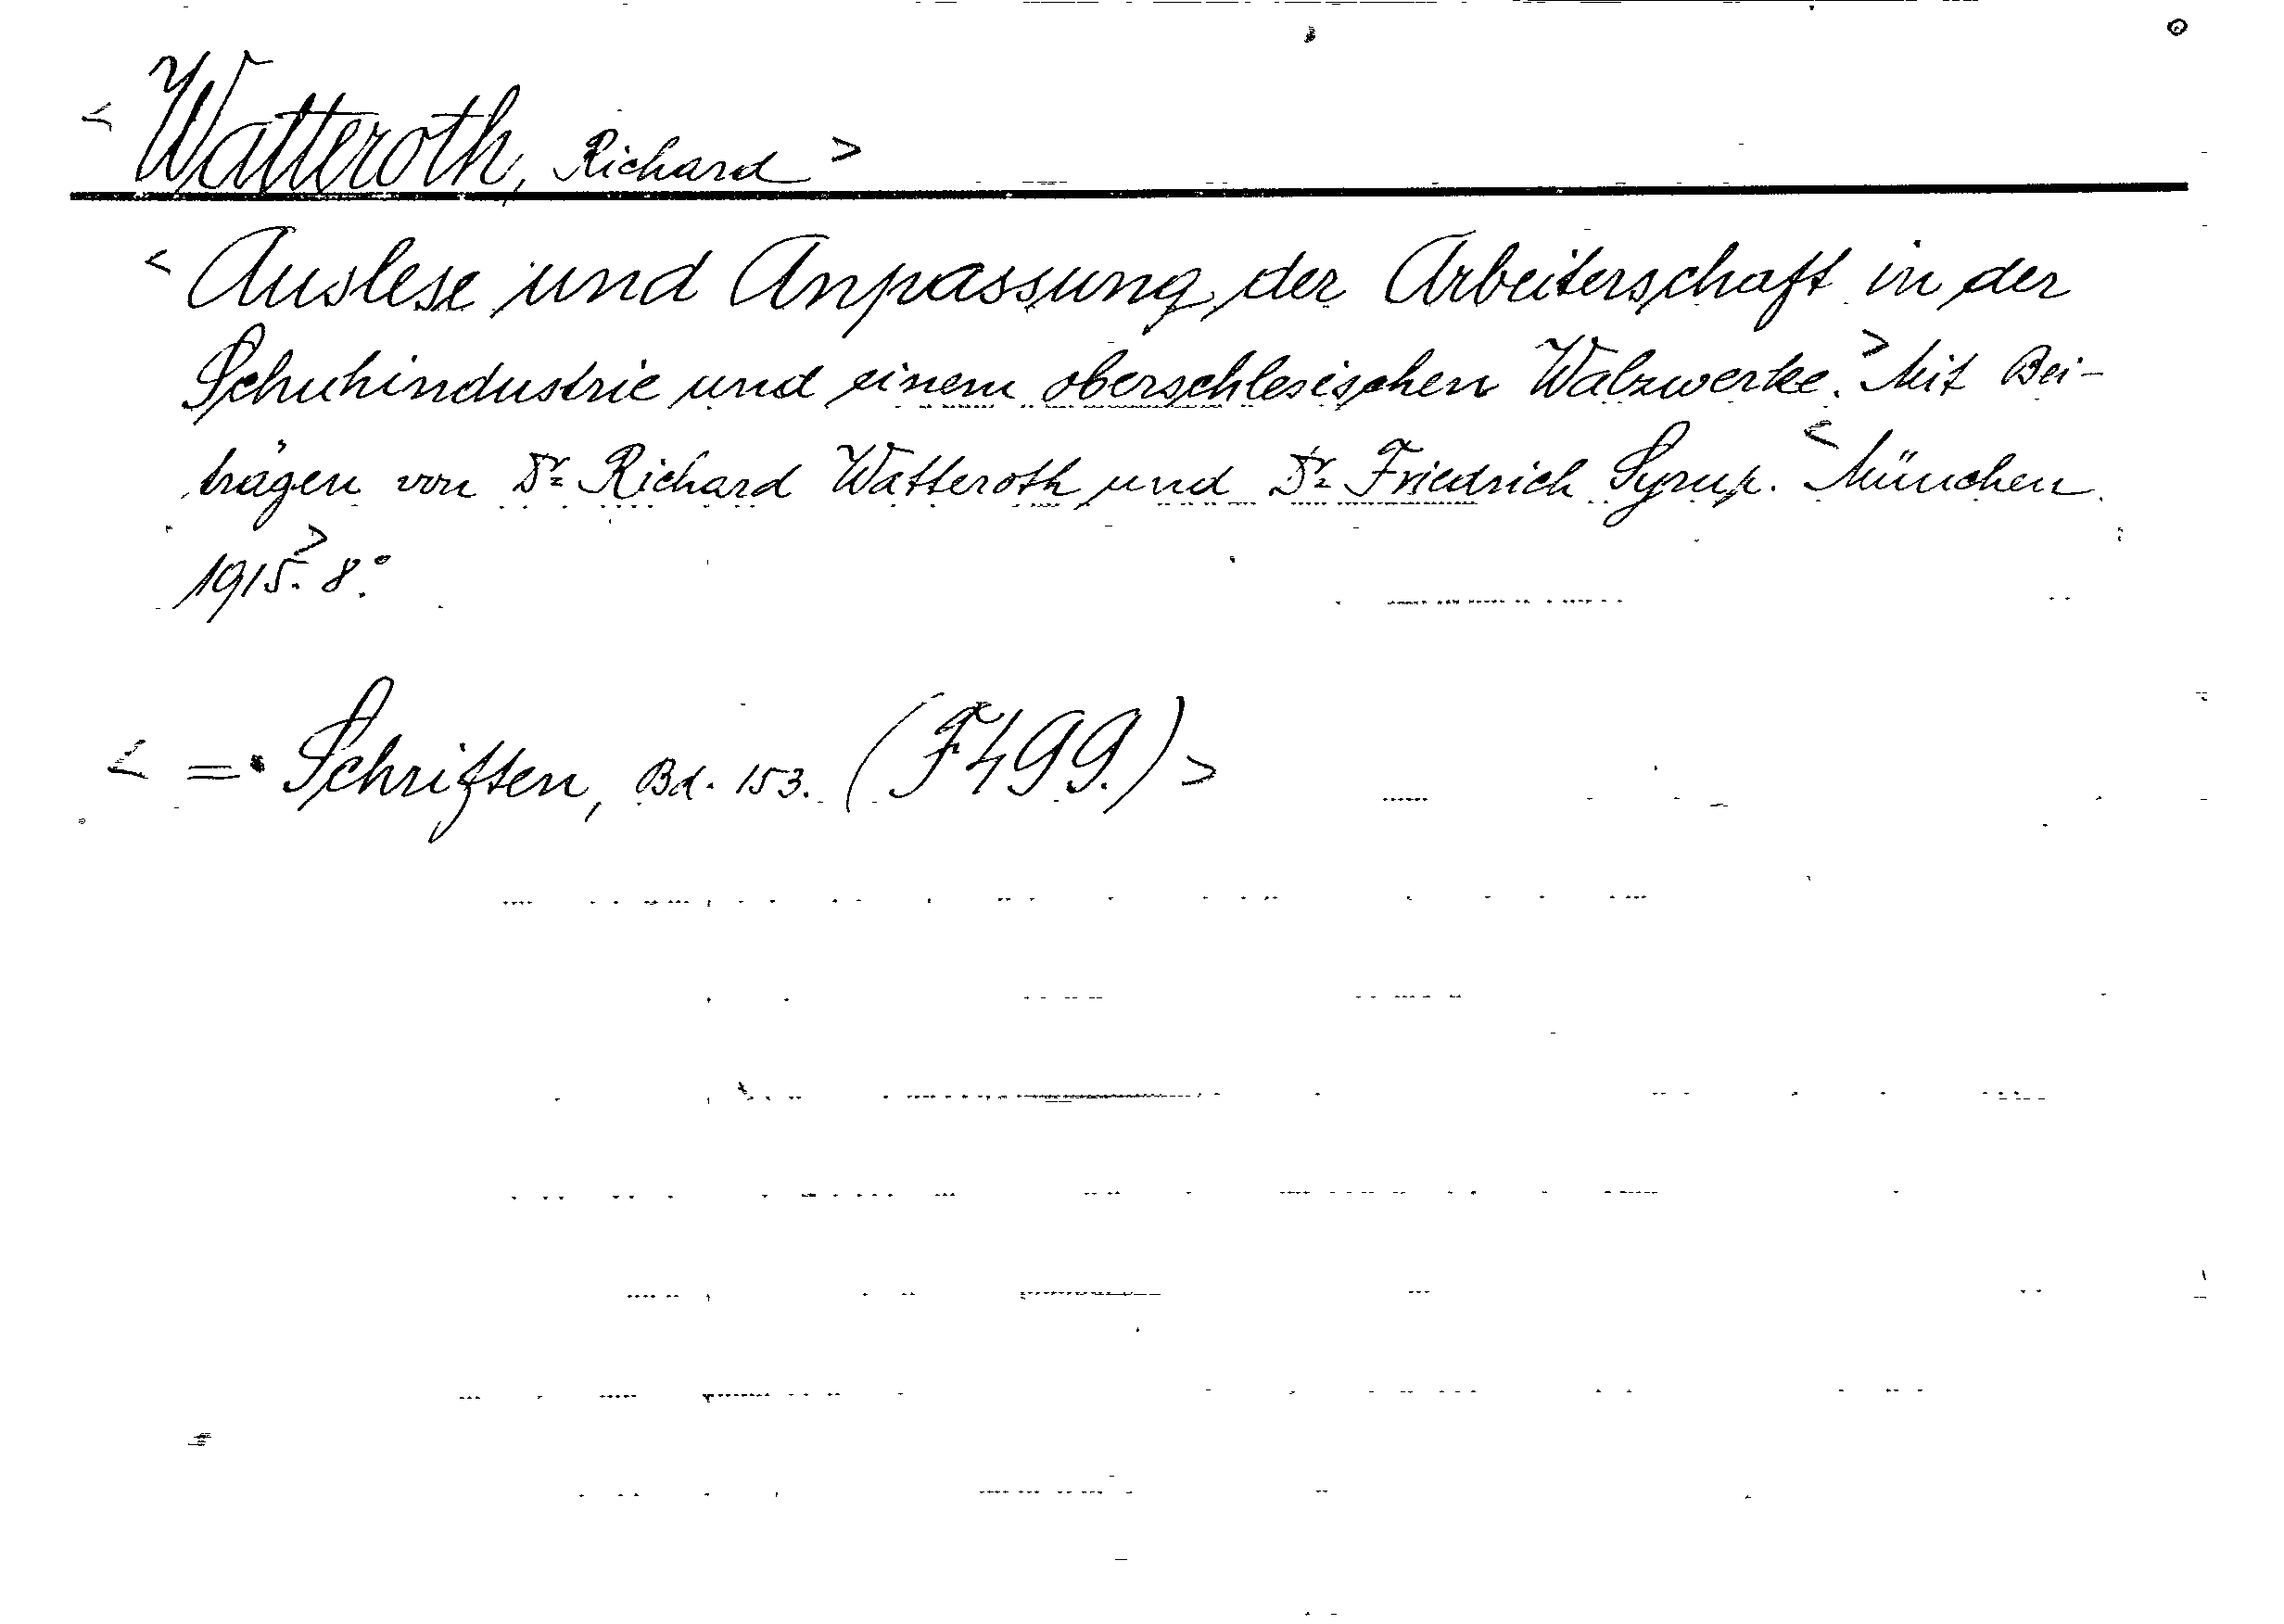 < Watteroth, Richard >
< Auslese und Anpassung der Arbeiterschaft in der
Schuhindustrie und einem oberschlesischen Walzwerke.> Mit Bei-
trägen von Dr. Richard Watteroth und Dr. Friedrich Syrup. < München
1915.> 8°.
< = Schriften, Bd. 153. (F499.) >